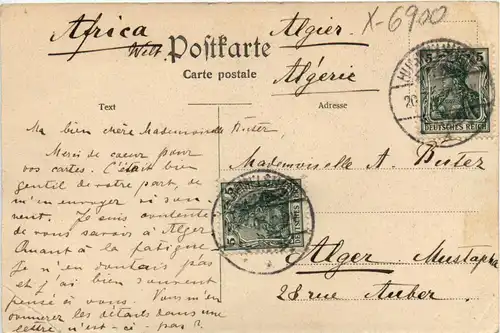 Africa
Algier
X-6900
Postkarte
Algérie
Carte postale
Text
Adresse
5 5
DEUTSCHES REICH
20
Ma bien chère Mademoiselle Buter,
Merci de coeur pour
vos cartes. C'était bien
gentil de votre part, de
m'en envoyer si sou-
vent. Je suis contente
de vous savoir à Alger
Quant à la fatigue
Je n'en doutais pas
et j'ai bien souvent
pensé à vous. Vous m'en
donnerez les détails dans une
lettre, n'est-ce pas?
Mademoiselle A. Buter
5 5
Alger Mustapha
28 rue Auber